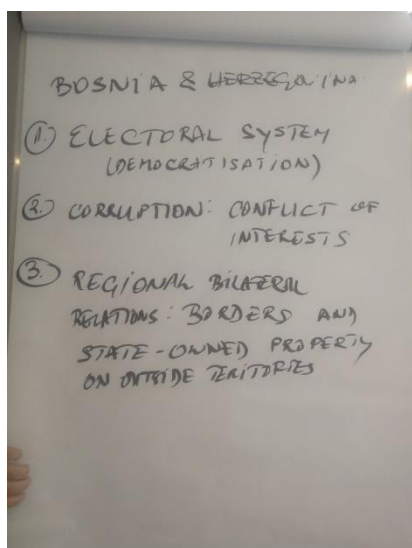 BOSNIA & HERZEGOVINA
1. ELECTORAL SYSTEM
(DEMOCRATISATION)
2. CORRUPTION: CONFLICT OF
INTERESTS
3. REGIONAL BILATERAL
RELATIONS: BORDERS AND
STATE-OWNED PROPERTY
ON OUTSIDE TERITORIES